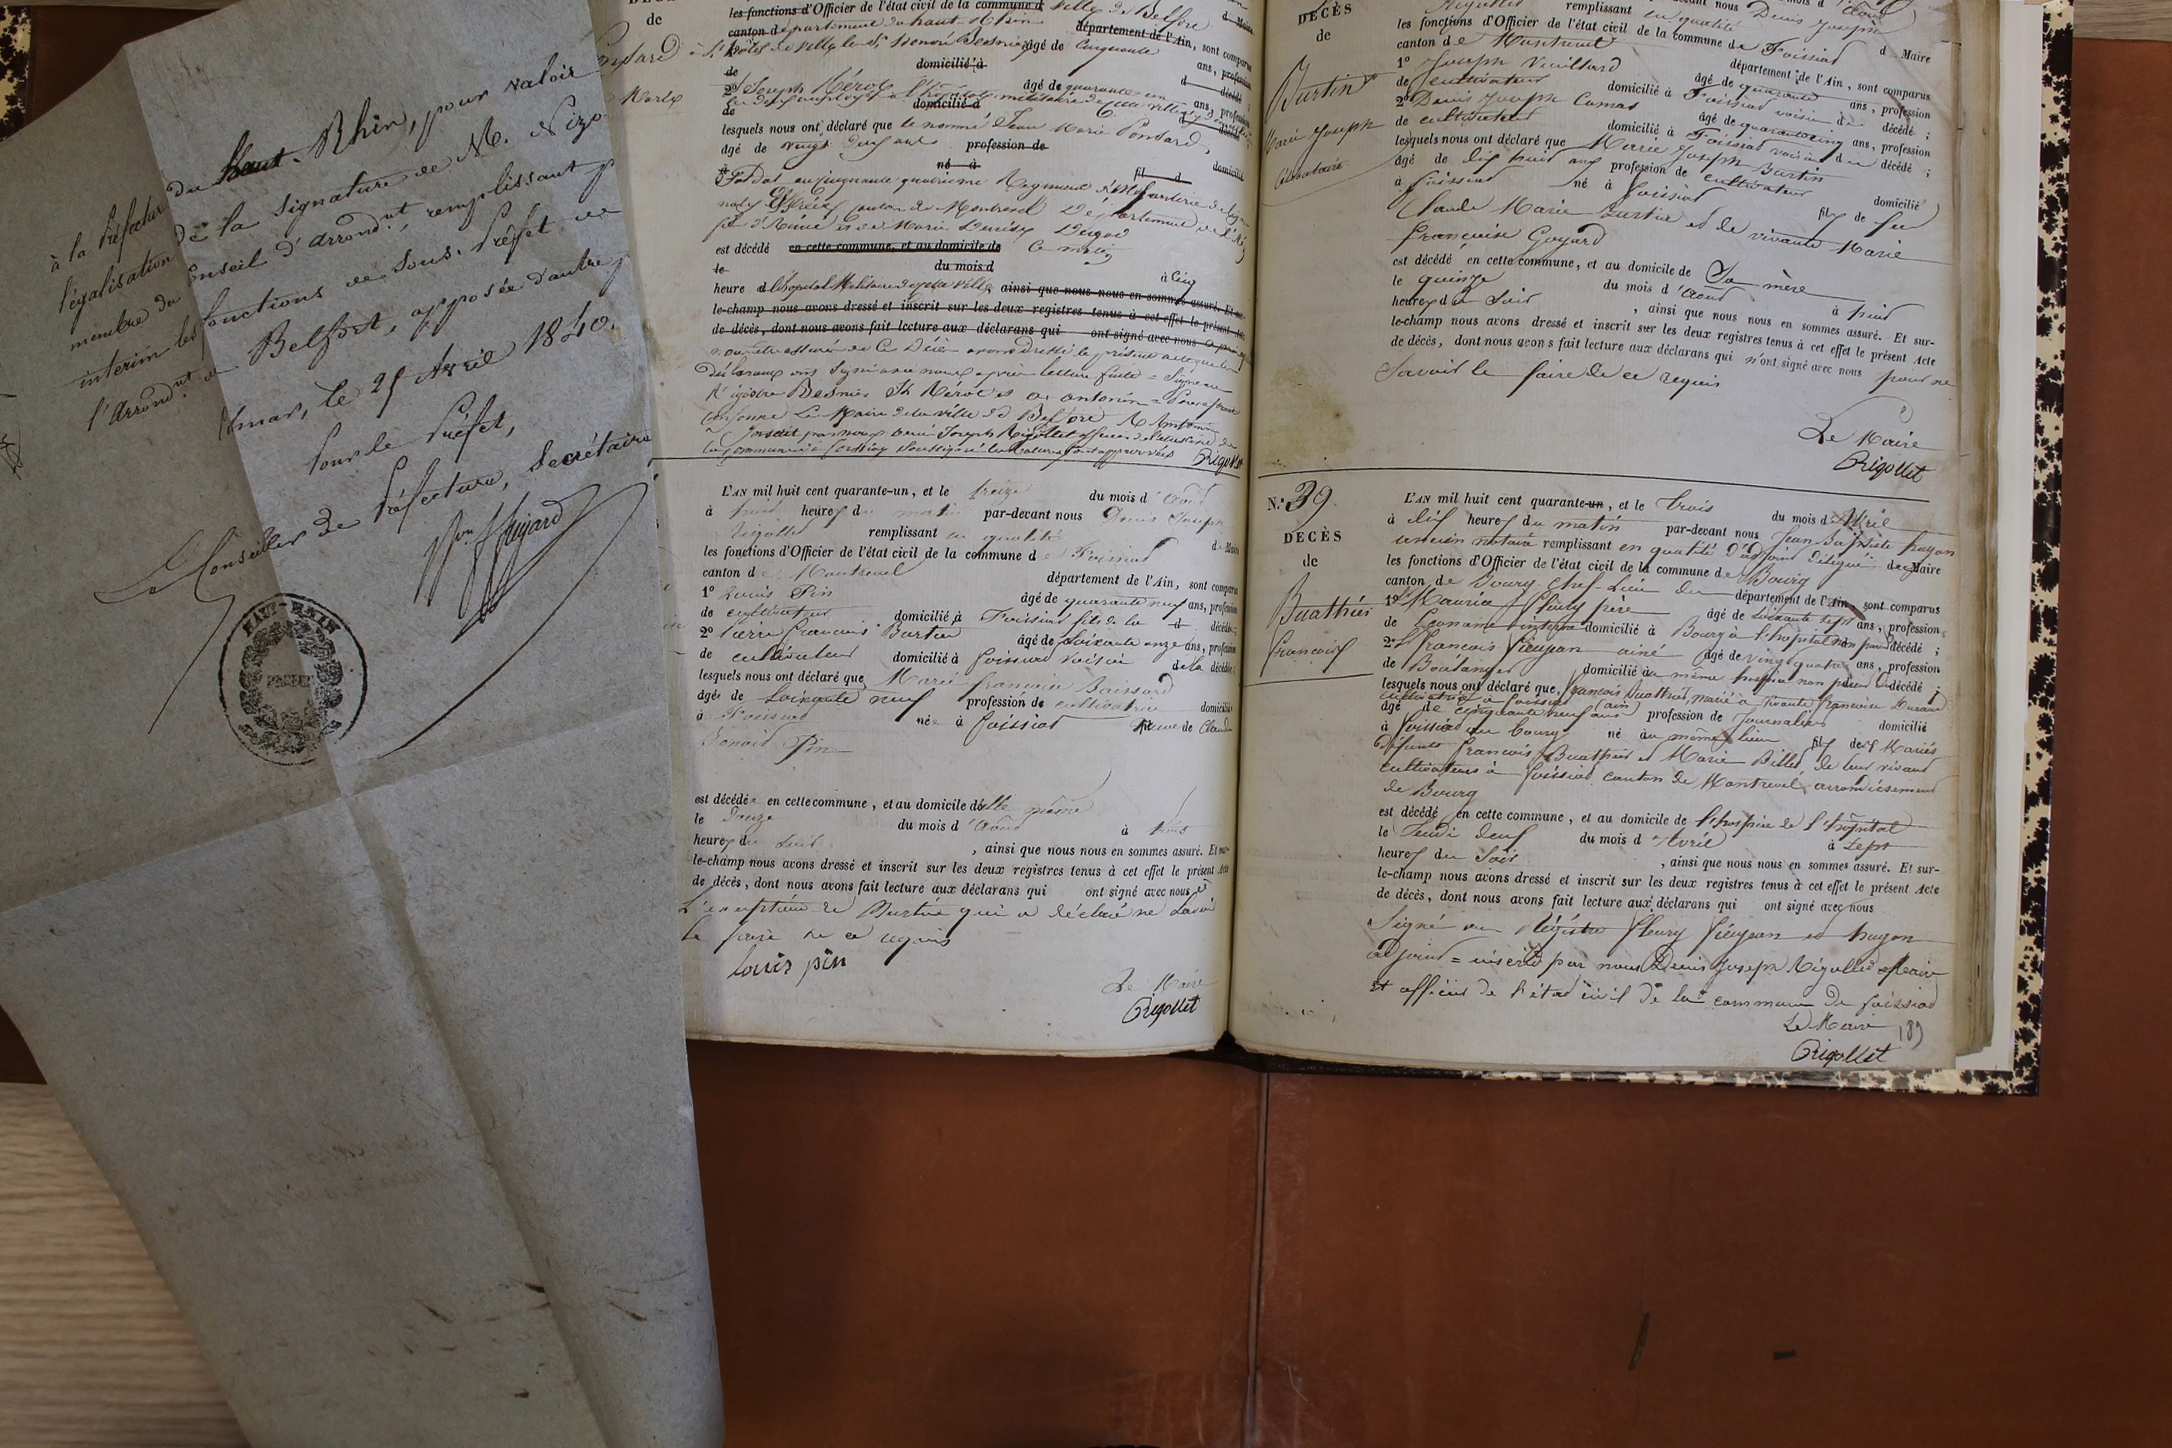 à la Préfecture du Haut-Rhin, pour valoir
légalisation de la signature de M. Nizo
membre du Conseil d'arrond.nt, remplissant p
interim les fonctions de Sous-Préfet de
l'arrond.nt de Belfort, apposée d'autre p
Colmar, le 25 Avril 1840.
Pour le Préfet,
Le Conseiller de Préfecture, Secrétaire
HAUT-RHIN
PREFET
de
Marie
les fonctions d'Officier de l'état civil de la commune d ville de Belfort
canton département du haut Rhin département de l'Ain, sont comparus
âgé de Cinquante ans, profession
de domicilié à
2° Joseph Mérot âgé de quarante un ans, profession
de domicilié d
lesquels nous ont déclaré que le nommé Jean Marie Ponsard,
âgé de vingt deux ans profession de
né à fil d domicilié
Soldat au cinquante quatrième Régiment d'infanterie de ligne
canton de Montrevel Département de l'Ain
est décédé en cette commune, et au domicile de Ce matin
le du mois d à Cinq
heure d l'hopital Militaire de cette Ville ainsi que nous nous en sommes assuré. Et sur-
le-champ nous avons dressé et inscrit sur les deux registres tenus à cet effet le présent Acte
de décès, dont nous avons fait lecture aux déclarans qui ont signé avec nous
déclarans ont signé avec nous après lecture faite = Signé au
Régistre Besnier Jh Mérot et a antonin = Pour copie
conforme Le Maire de la ville de Belfort
Inscrit par nous Denis Joseph Rigollet officier de l'état civil de
la commune de foissiat soussigné
Rigollet
L'AN mil huit cent quarante-un, et le treize du mois d'Août
à huit heures du matin par-devant nous Denis Joseph
Rigollet remplissant en qualité d Maire
les fonctions d'Officier de l'état civil de la commune de Foissiat
canton de Montrevel département de l'Ain, sont comparus
1° Louis Pin âgé de quarante neuf ans, profession
de cultivateur domicilié à Foissiat fils de la d décédée;
2° Pierre françois Burtin âgé de soixante onze ans, profession
de cultivateur domicilié à foissiat voisin de la décédée;
lesquels nous ont déclaré que Marie françoise Boissard
âgée de soixante neuf profession de cultivatrice domiciliée
à Foissiat née à foissiat veuve de Claude
Benoit Pin
est décédée en cette commune, et au domicile d'elle même
le Douze du mois d'Août à trois
heures du soir, ainsi que nous nous en sommes assuré. Et sur-
le-champ nous avons dressé et inscrit sur les deux registres tenus à cet effet le présent Acte
de décès, dont nous avons fait lecture aux déclarans qui ont signé avec nous à
l'exception de Burtin qui a déclaré ne savoir
le faire de ce requis
louis pin
Le Maire
Rigollet
DÉCÈS
de
Burtin
Marie Joseph
Célibataire
Rigollet remplissant en qualité d Maire
les fonctions d'Officier de l'état civil de la commune de Foissiat
canton de Montrevel département de l'Ain, sont comparus
1° Joseph Vuillard âgé de quarante ans, profession
de cultivateur domicilié à Foissiat voisin du décédé;
2° Denis Joseph Comas âgé de quarante cinq ans, profession
de cultivateur domicilié à Foissiat voisin du décédé;
lesquels nous ont déclaré que Marie Joseph Burtin
âgé de dix huit ans profession de cultivateur domicilié
à foissiat né à foissiat fils de feu
Claude Marie Burtin et de vivante Marie
françoise Goyard
est décédé en cette commune, et au domicile de Sa mère
le quinze du mois d'Août à huit
heures du soir, ainsi que nous nous en sommes assuré. Et sur-
le-champ nous avons dressé et inscrit sur les deux registres tenus à cet effet le présent Acte
de décès, dont nous avons fait lecture aux déclarans qui n'ont signé avec nous pour ne
savoir le faire de ce requis
Le Maire
Rigollet
N.° 39
DÉCÈS
de
Buathier
François
L'AN mil huit cent quarante-un, et le trois du mois d'Avril
à dix heures du matin par-devant nous Jean Baptiste hugon
ancien notaire remplissant en qualité d'adjoint délégué du Maire
les fonctions d'Officier de l'état civil de la commune de Bourg
canton de Bourg chef-lieu du département de l'Ain, sont comparus
1° Maurice fleury pere âgé de soixante sept ans, profession
de domicilié à Bourg à l'hopital non parent du décédé;
2° françois Vieujean ainé âgé de vingt quatre ans, profession
de Boulanger domicilié au même hospice non parent du décédé;
lesquels nous ont déclaré que françois Buathier, marié à vivante françoise Durand
cultivatrice à foissiat (ain)
âgé de cinquante neuf ans profession de Journalier domicilié
à foissiat au bourg né au même lieu fils des Mariés
défunts françois Buathier et Marie Billet, de leur vivant
cultivateurs à foissiat canton de Montrevel, arrondissement
de Bourg
est décédé en cette commune, et au domicile de l'hospice de l'hôpital
le Jeudi deux du mois d'Avril à sept
heures du Soir, ainsi que nous nous en sommes assuré. Et sur-
le-champ nous avons dressé et inscrit sur les deux registres tenus à cet effet le présent Acte
de décès, dont nous avons fait lecture aux déclarans qui ont signé avec nous
Signé au Régistre fleury Vieujean et hugon
adjoint = inséré par nous Denis Joseph Rigollet Maire
et officier de l'état civil de la commune de foissiat
Le Maire
Rigollet
189